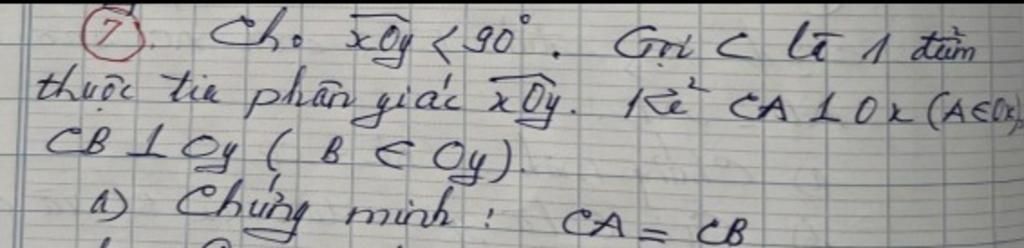 7. Cho xOy < 90°. Gọi C là 1 điểm
thuộc tia phân giác xOy. Kẻ CA ⊥ Ox (A ∈ Ox)
CB ⊥ Oy ( B ∈ Oy ).
a) Chứng minh : CA = CB